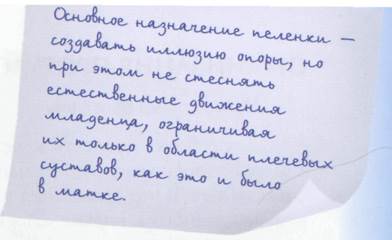 Основное назначение пеленки —
создавать иллюзию опоры, но
при этом не стеснять
естественные движения
младенца, ограничивая
их только в области плечевых
суставов, как это и было
в матке.